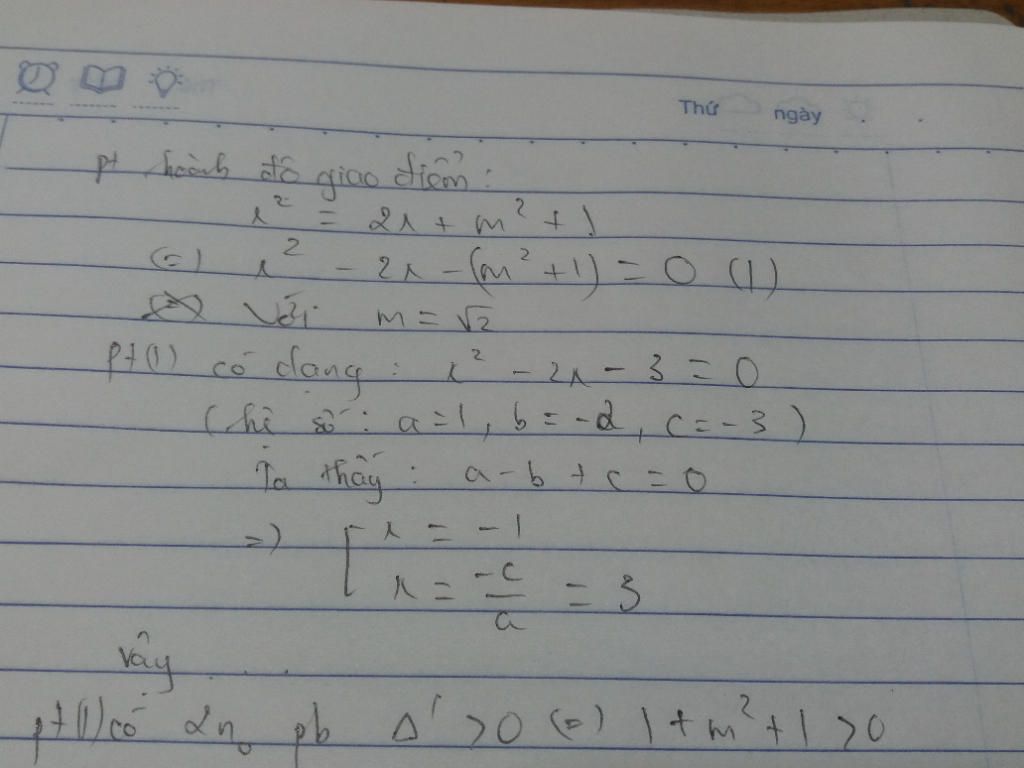 Thứ ngày
pt hoành độ giao điểm:
x² = 2x + m² + 1
(=) x² - 2x - (m² + 1) = 0 (1)
Với m = √2
pt(1) có dạng: x² - 2x - 3 = 0
(hệ số: a = 1, b = -2, c = -3)
Ta thấy: a - b + c = 0
=) [ x = -1
x = -c/a = 3
Vậy ...
pt(1) có 2 no pb Δ' > 0 (=) 1 + m² + 1 > 0